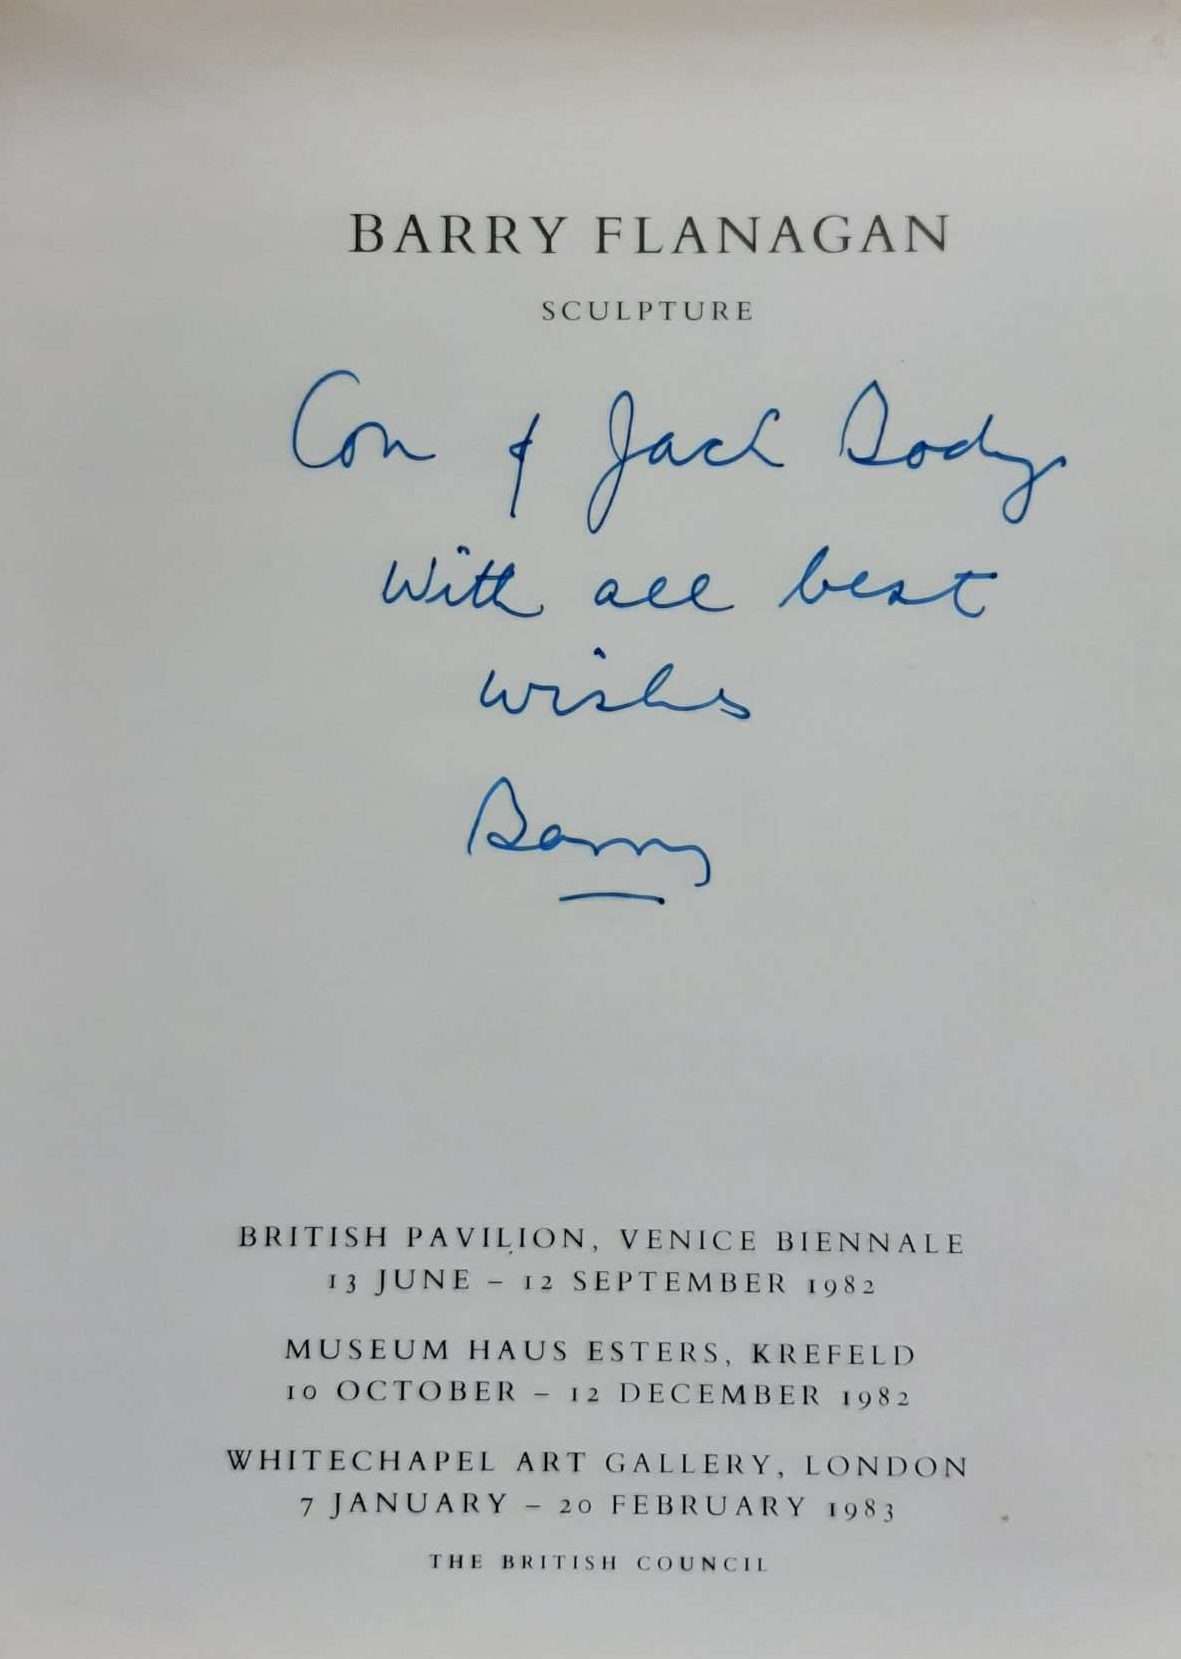 BARRY FLANAGAN
SCULPTURE
Con & Jack Body
With all best
wishes
Barry
BRITISH PAVILION, VENICE BIENNALE
13 JUNE – 12 SEPTEMBER 1982
MUSEUM HAUS ESTERS, KREFELD
10 OCTOBER – 12 DECEMBER 1982
WHITECHAPEL ART GALLERY, LONDON
7 JANUARY – 20 FEBRUARY 1983
THE BRITISH COUNCIL